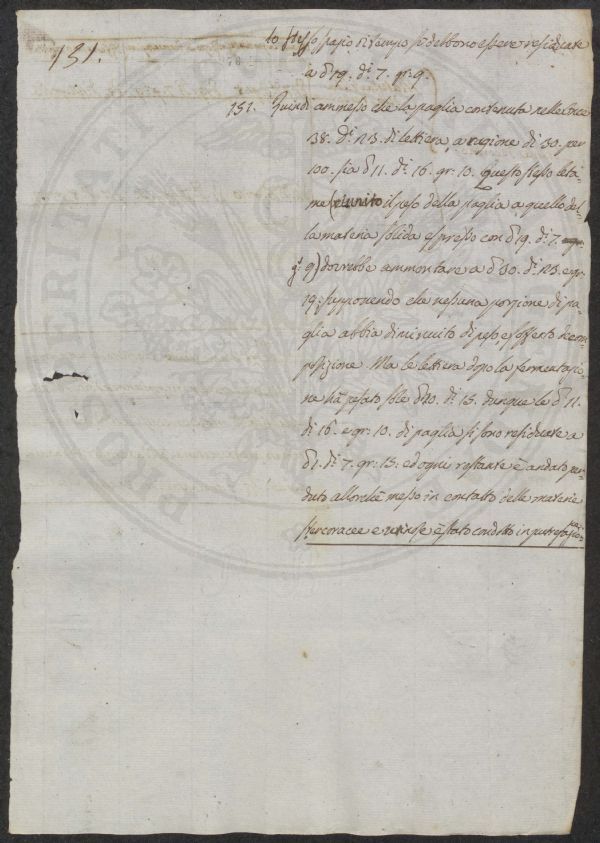 lo stesso spazio di tempo si debbono essere residuate
131.
a ℔ 19. dı̃. 7. gr. 9.
151. Quindi ammesso che la paglia contenuta nelle libre
38. dı̃. 23. di lettiera, a ragione di 30. per
100. sia ℔ 11. dı̃. 16. gr. 10. Questo stesso leta-
me (riunito il peso della paglia a quello del-
la materia solida espresso con ℔ 19. dı̃. 7.
gr. 9) dovrebbe ammontare a ℔ 30. dı̃. 23. e gr.
19; supponendo che nessuna porzione di pa-
glia abbia diminuito di peso, e sofferto decom-
posizione. Ma le lettiera dopo la fermentazio-
ne hã pesato sole ℔ 20. dı̃. 15. dunque le ℔ 11.
dı̃. 16. e gr. 10. di paglia si sono residuate a
℔ 1. dı̃. 7. gr. 15. ed ogni restante è andato per-
duto allorchè messo in contatto delle materie
stercoracee e urinose è stato condotto in putrefazione